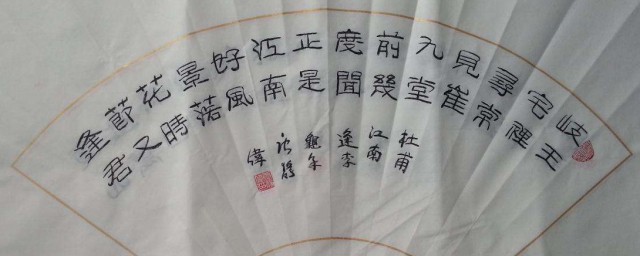 岐王
宅裡
尋常
見崔
九堂
前幾
度聞
正是
江南
好風
景落
花時
節又
逢君
杜甫
江南
逢李
龜年
偉